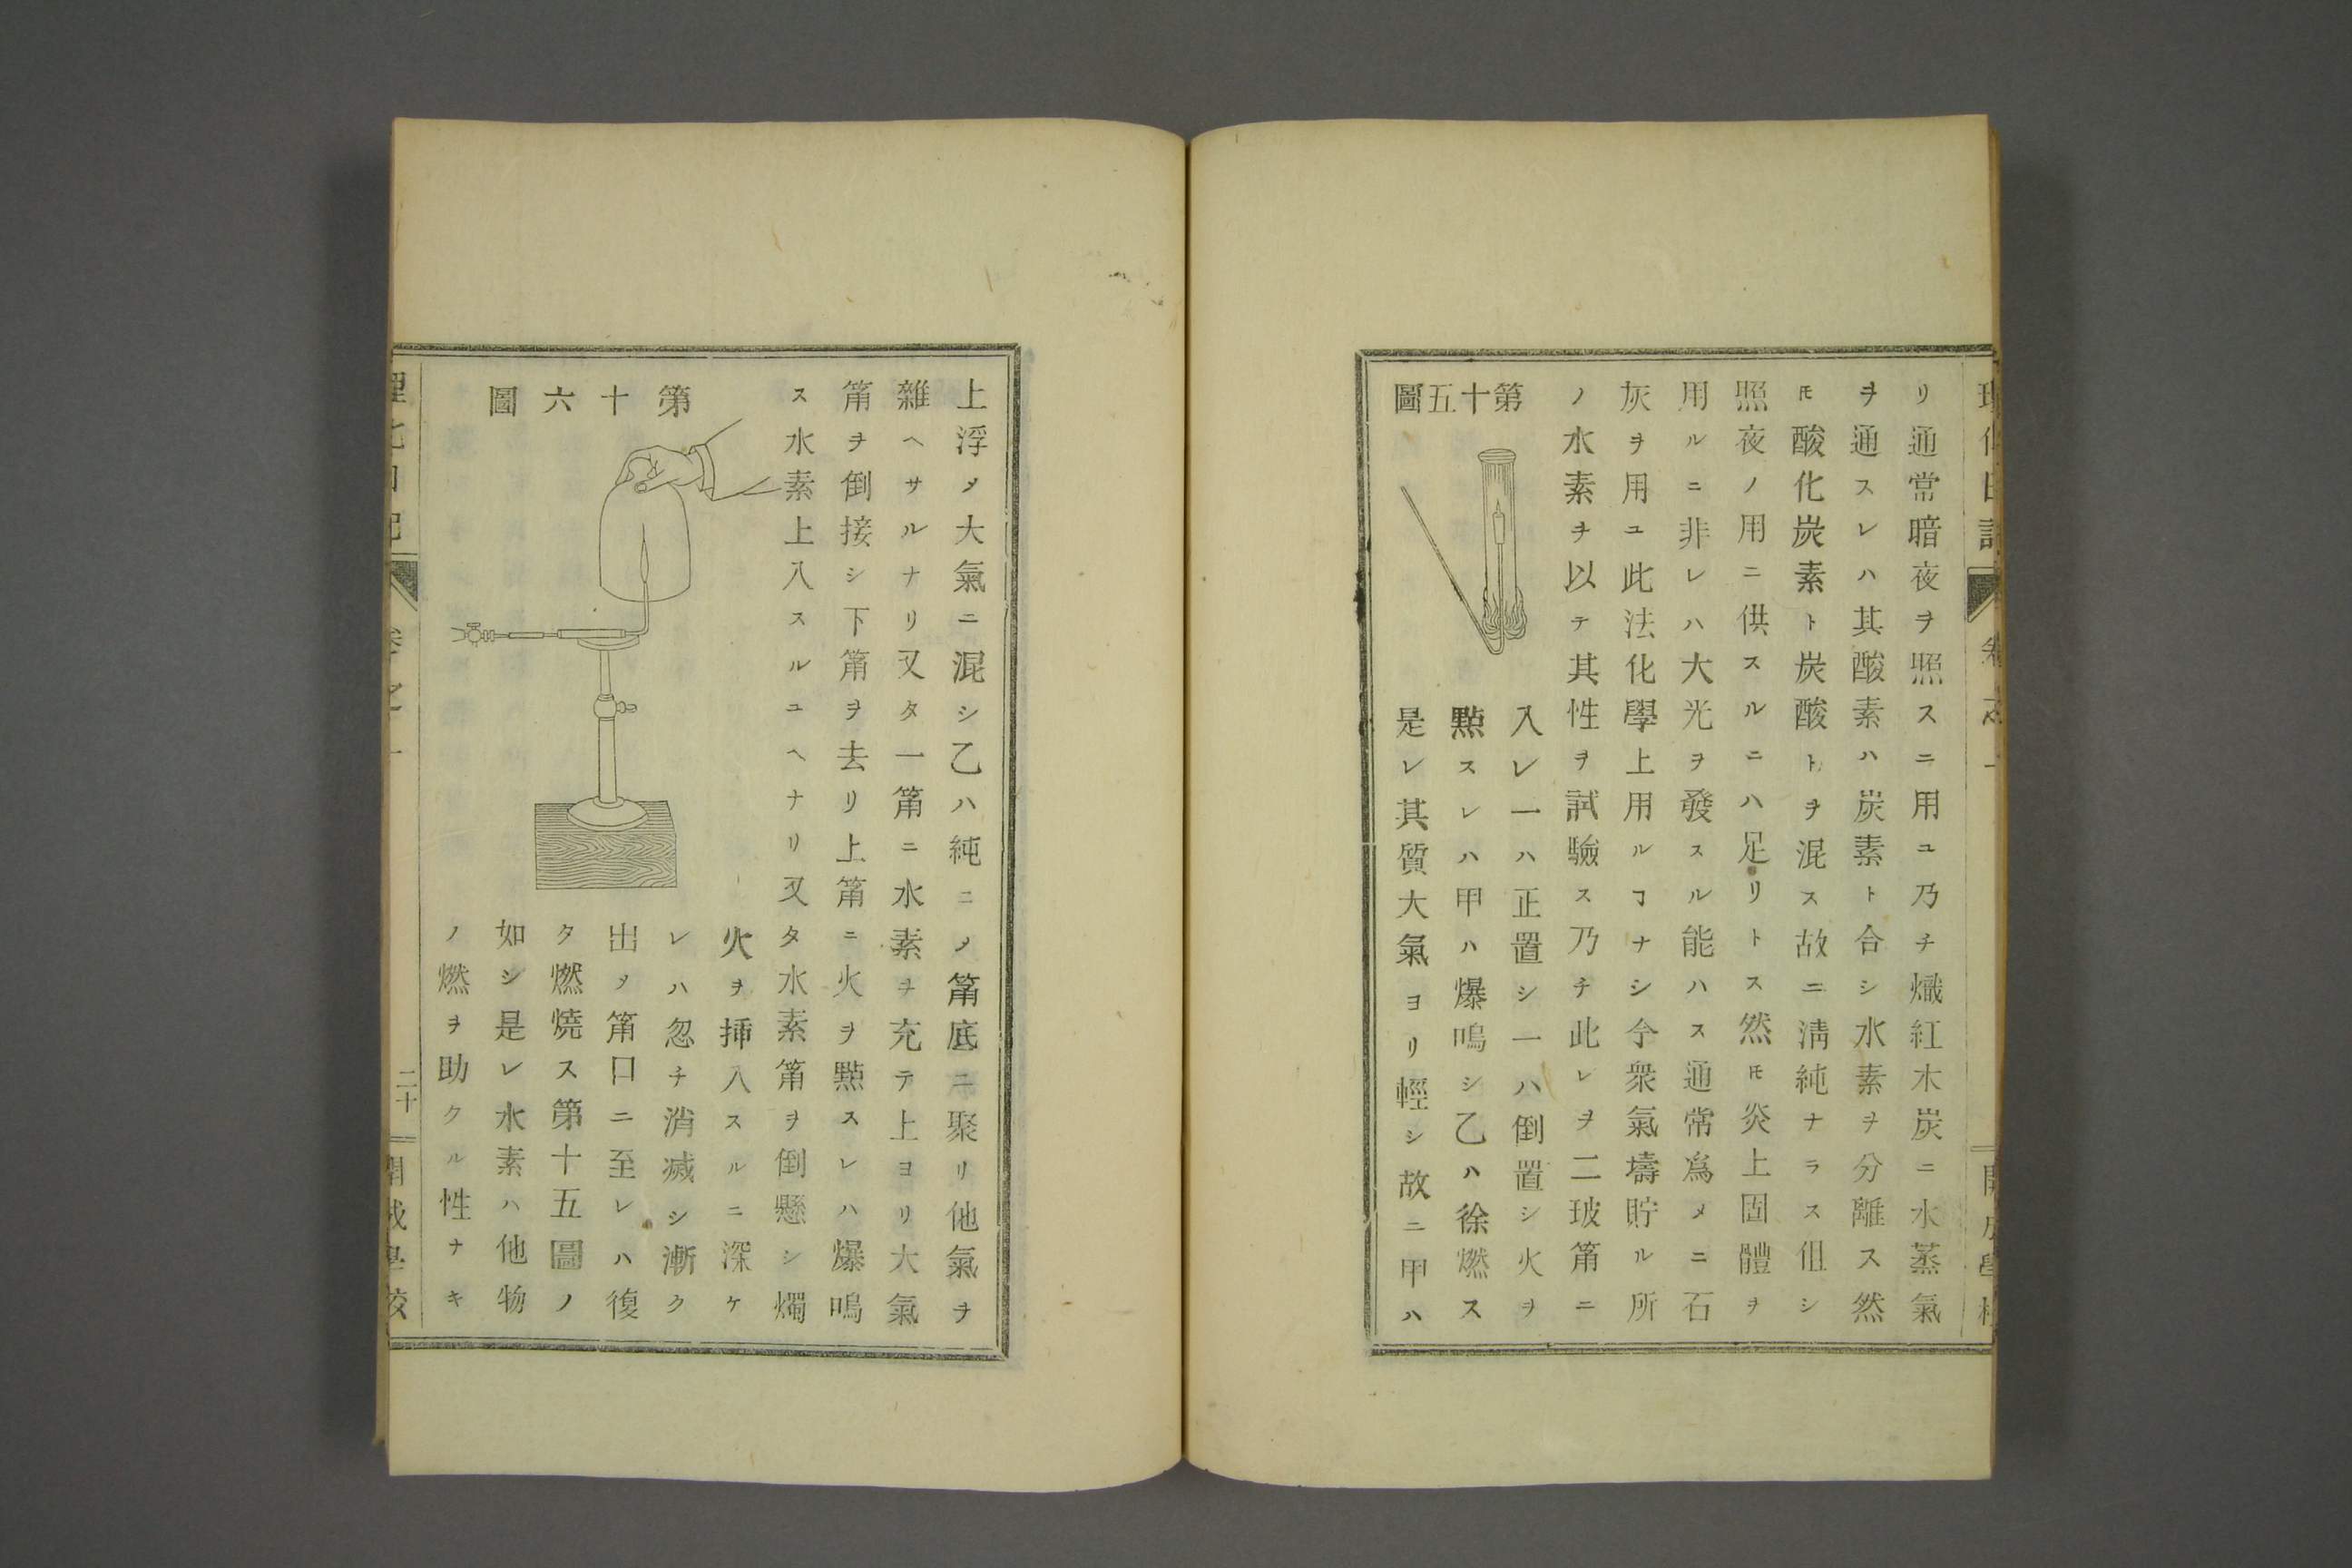 リ通常暗夜ヲ照スニ用ユ乃チ熾紅木炭ニ水蒸氣
ヲ通スレハ其酸素ハ炭素ト合シ水素ヲ分離ス然
𪜈酸化炭素ト炭酸トヲ混ス故ニ淸純ナラス伹シ
照夜ノ用ニ供スルニハ足リトス然𪜈炎上固體ヲ
用ルニ非レハ大光ヲ發スル能ハス通常爲メニ石
灰ヲ用ユ此法化學上用ルヿナシ今衆氣壔貯ル所
ノ水素ヲ以テ其性ヲ試驗ス乃チ此レヲ二玻筩ニ
第十五圖
入レ一ハ正置シ一ハ倒置シ火ヲ
㸃スレハ甲ハ爆鳴シ乙ハ徐燃ス
是レ其質大氣ヨリ輕シ故ニ甲ハ
上浮〆大氣ニ混シ乙ハ純ニ〆筩底ニ聚リ他氣ヲ
雜ヘサルナリ又タ一筩ニ水素ヲ充テ上ヨリ大氣
筩ヲ倒接シ下筩ヲ去リ上筩ニ火ヲ㸃スレハ爆鳴
ス水素上入スルユヘナリ又タ水素筩ヲ倒懸シ燭
第十六圖
火ヲ挿入スルニ深ケ
レハ忽チ消滅シ漸ク
出〆筩口ニ至レハ復
タ燃燒ス第十五圖ノ
如シ是レ水素ハ他物
ノ燃ヲ助クル性ナキ
二十